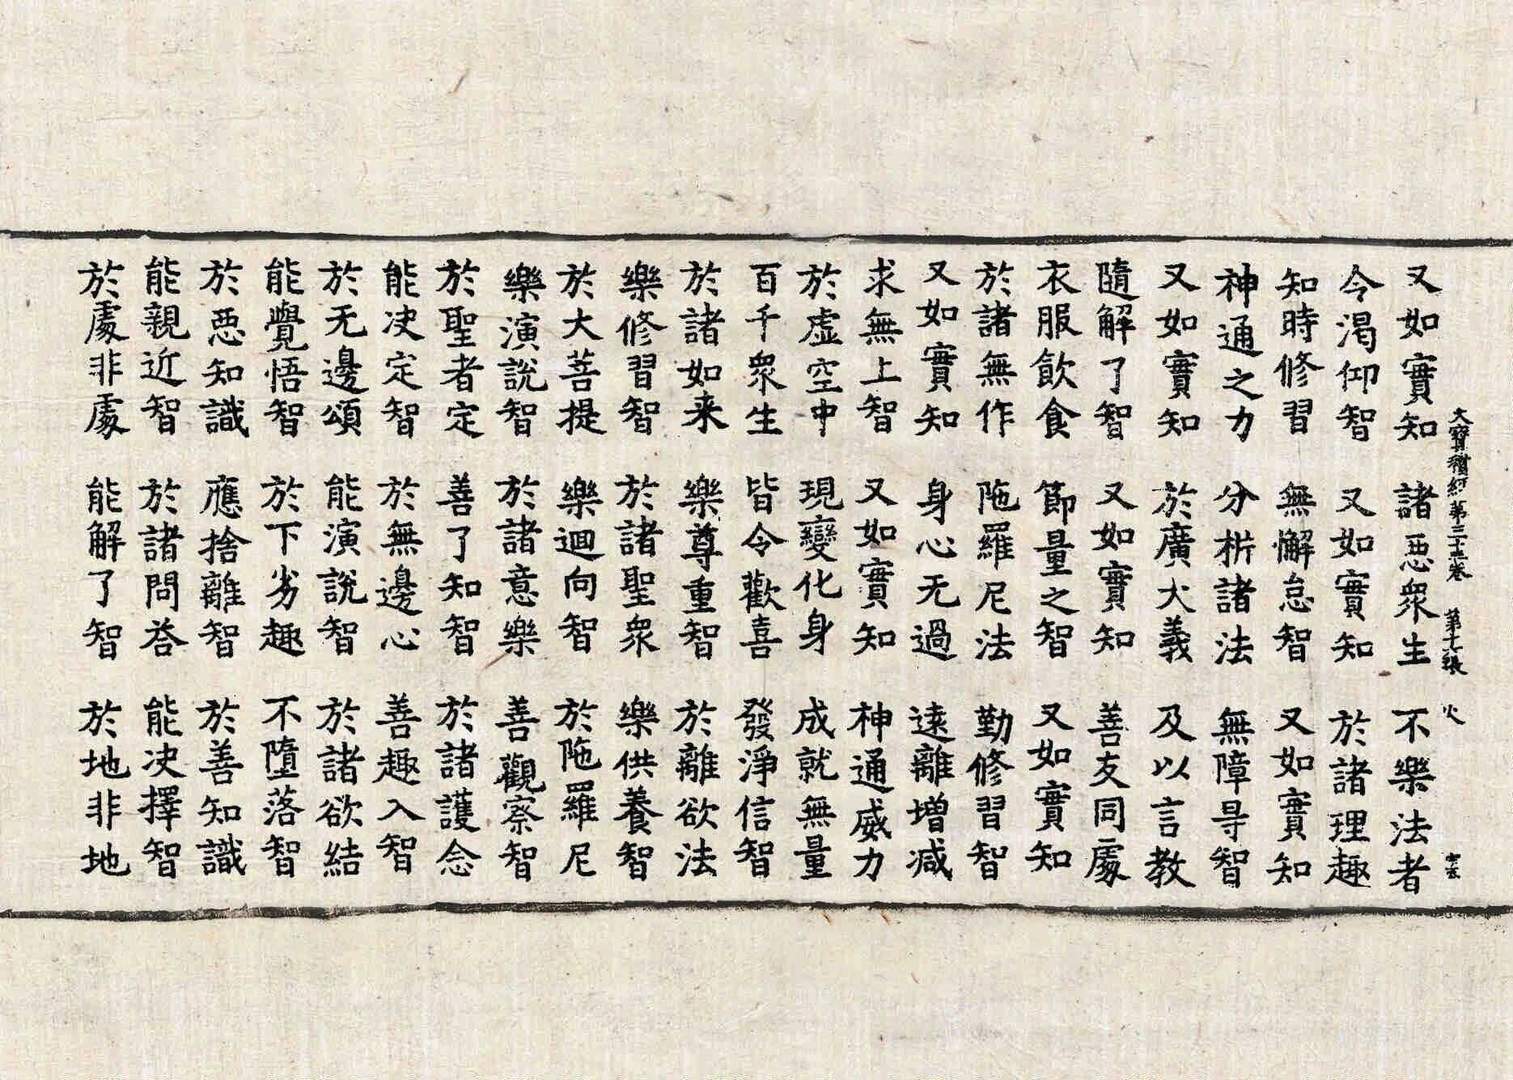 大寶積經第三十六卷 第十七張 火
又如實知 諸惡眾生 不樂法者
令渴仰智 又如實知 於諸理趣
知時修習 無懈怠智 又如實知
神通之力 分析諸法 無障导智
又如實知 於廣大義 及以言教
隨解了智 又如實知 善友同處
衣服飲食 節量之智 又如實知
於諸無作 陁羅尼法 勤修習智
又如實知 身心无過 遠離增减
求無上智 又如實知 神通威力
於虛空中 現變化身 成就無量
百千眾生 皆令歡喜 發淨信智
於諸如来 樂尊重智 於離欲法
樂修習智 於諸聖眾 樂供養智
於大菩提 樂迴向智 於陁羅尼
樂演說智 於諸意樂 善觀察智
於聖者定 善了知智 於諸護念
能决定智 於無邊心 善趣入智
於无邊頌 能演說智 於諸欲結
能覺悟智 於下劣趣 不墮落智
於惡知識 應捨離智 於善知識
能親近智 於諸問荅 能决擇智
於處非處 能解了智 於地非地